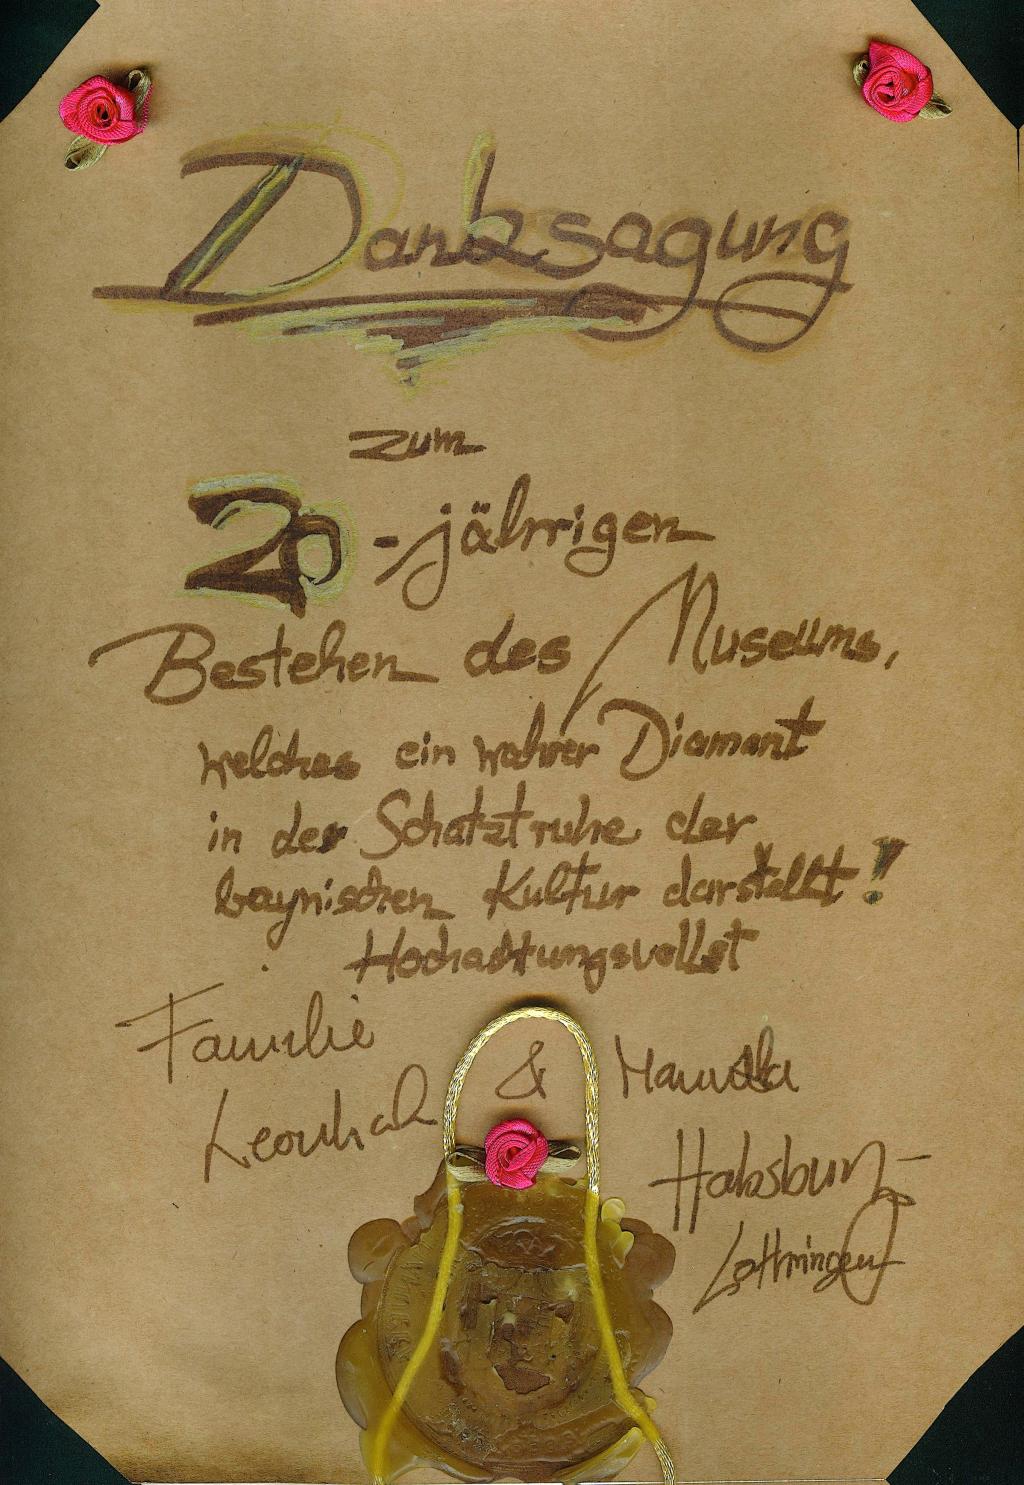 Danksagung
zum
20-jährigen
Bestehen des Museums,
welches ein wahrer Diamant
in der Schatztruhe der
bayrischen Kultur darstellt!
Hochachtungsvollst
Familie
&
Habsburg-
Lothringen